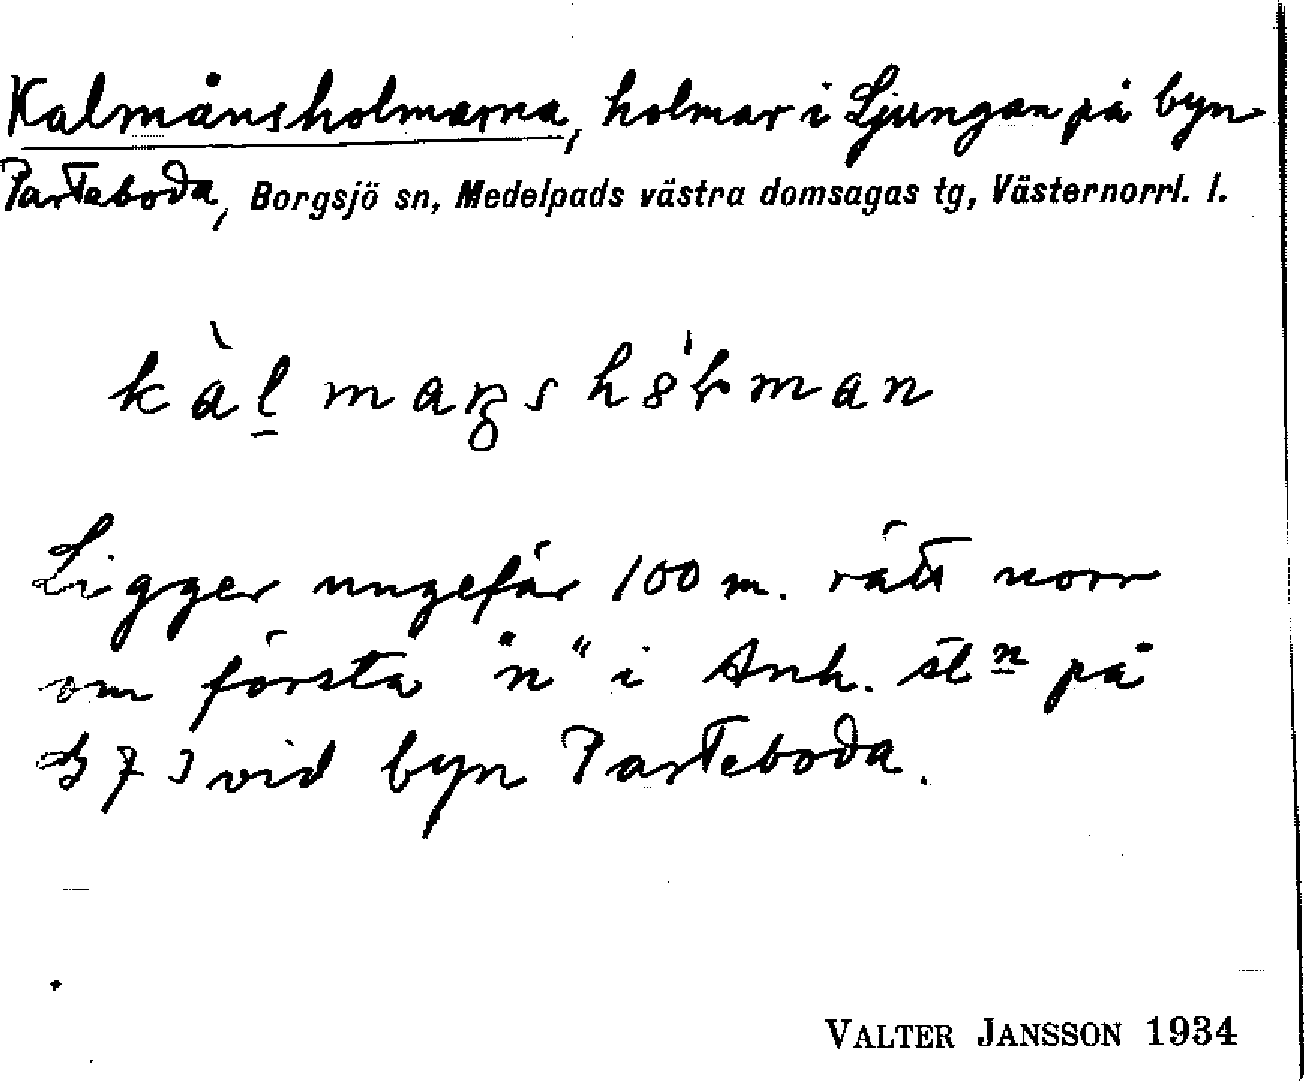 Kalmånsholmarna, holmar i Ljungan på byn
Parteboda, Borgsjö sn, Medelpads västra domsagas tg, Västernorrl. l.
Ligger ungefär 100 m. rätt norr
om första "n" i Anh. stn på
vid byn Parteboda.
VALTER JANSSON 1934